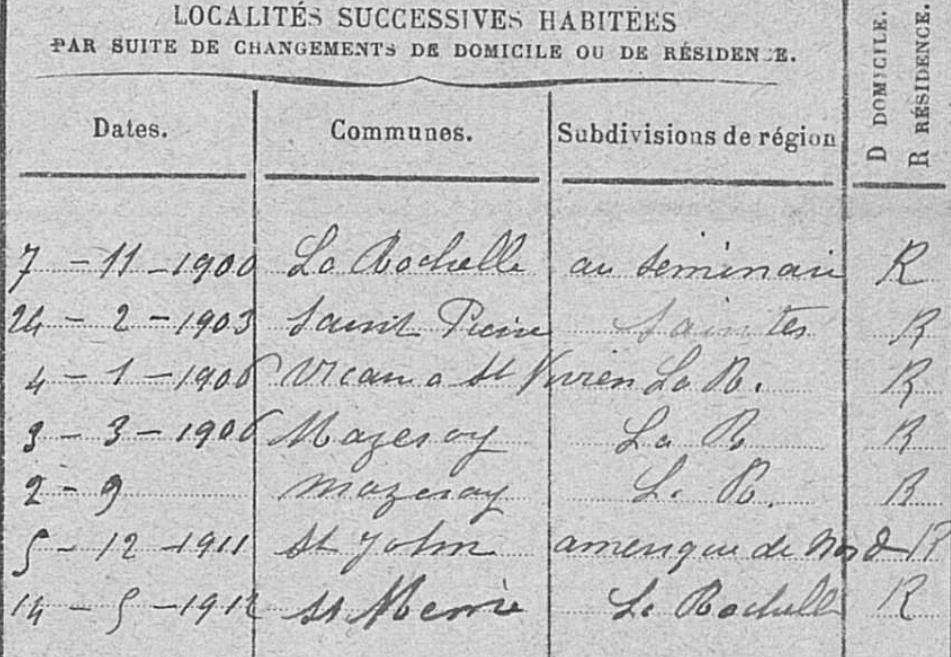 LOCALITÉS SUCCESSIVES HABITÉES
PAR SUITE DE CHANGEMENTS DE DOMICILE OU DE RÉSIDENCE.
D DOMICILE.
R RÉSIDENCE.
Dates. Communes. Subdivisions de région
7 - 11 - 1900 La Rochelle au séminaire R
24 - 2 - 1903 Saint Pierre Saintes R
4 - 1 - 1906 Vicau a St Vivien La R. R
3 - 3 - 1906 Mazeray La R R
2 - 9 Mazeray L. R. R
5 - 12 - 1911 St John amerique de Nord R
14 - 5 - 1912 St La Rochelle R